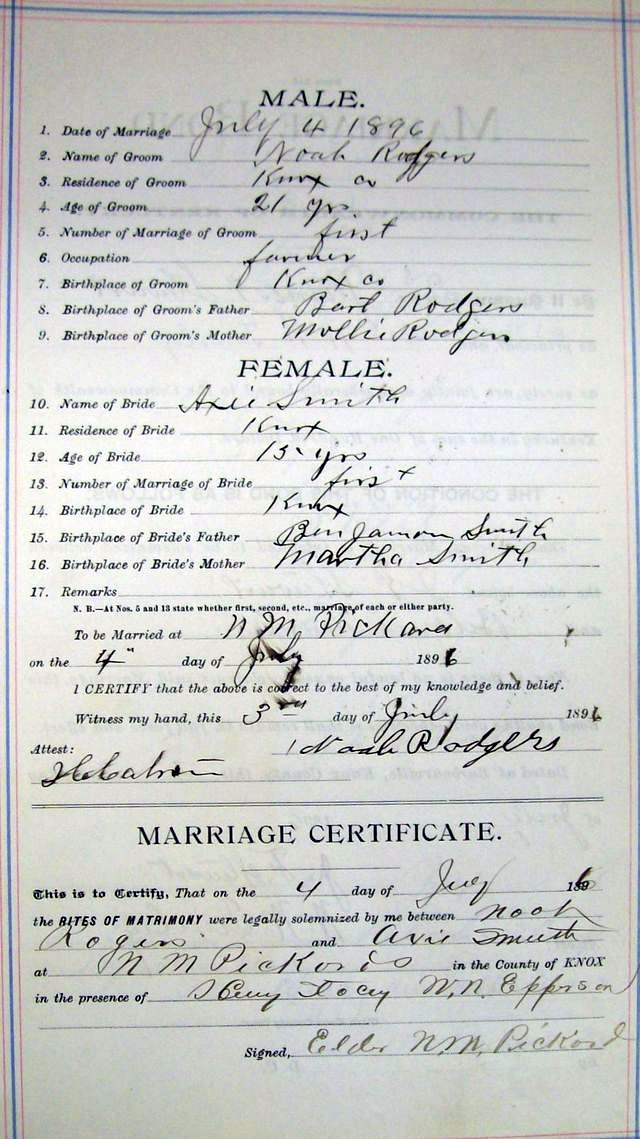 MALE.
1. Date of Marriage July 4 1896
2. Name of Groom Noah Rodgers
3. Residence of Groom Knox co
4. Age of Groom 21 yrs
5. Number of Marriage of Groom first
6. Occupation farmer
7. Birthplace of Groom Knox co
8. Birthplace of Groom's Father Bart Rodgers
9. Birthplace of Groom's Mother Mollie Rodgers
FEMALE.
10. Name of Bride Axie Smith
11. Residence of Bride Knox
12. Age of Bride 15 yrs
13. Number of Marriage of Bride first
14. Birthplace of Bride Knox
15. Birthplace of Bride's Father Benjamon Smith
16. Birthplace of Bride's Mother Martha Smith
17. Remarks
N. B.—At Nos. 5 and 13 state whether first, second, etc., marriage of each or either party.
To be Married at N M Pickard
on the 4" day of July 1896
I CERTIFY that the above is correct to the best of my knowledge and belief.
Witness my hand, this 3rd day of July 1896
Attest: Noah Rodgers
MARRIAGE CERTIFICATE.
This is to Certify, That on the 4 day of July 1896
the RITES OF MATRIMONY were legally solemnized by me between Noah
Rogers and Avie Smith
at N M Pickords in the County of KNOX
in the presence of W. N. Epperson
Signed, Elder N. M. Pickord